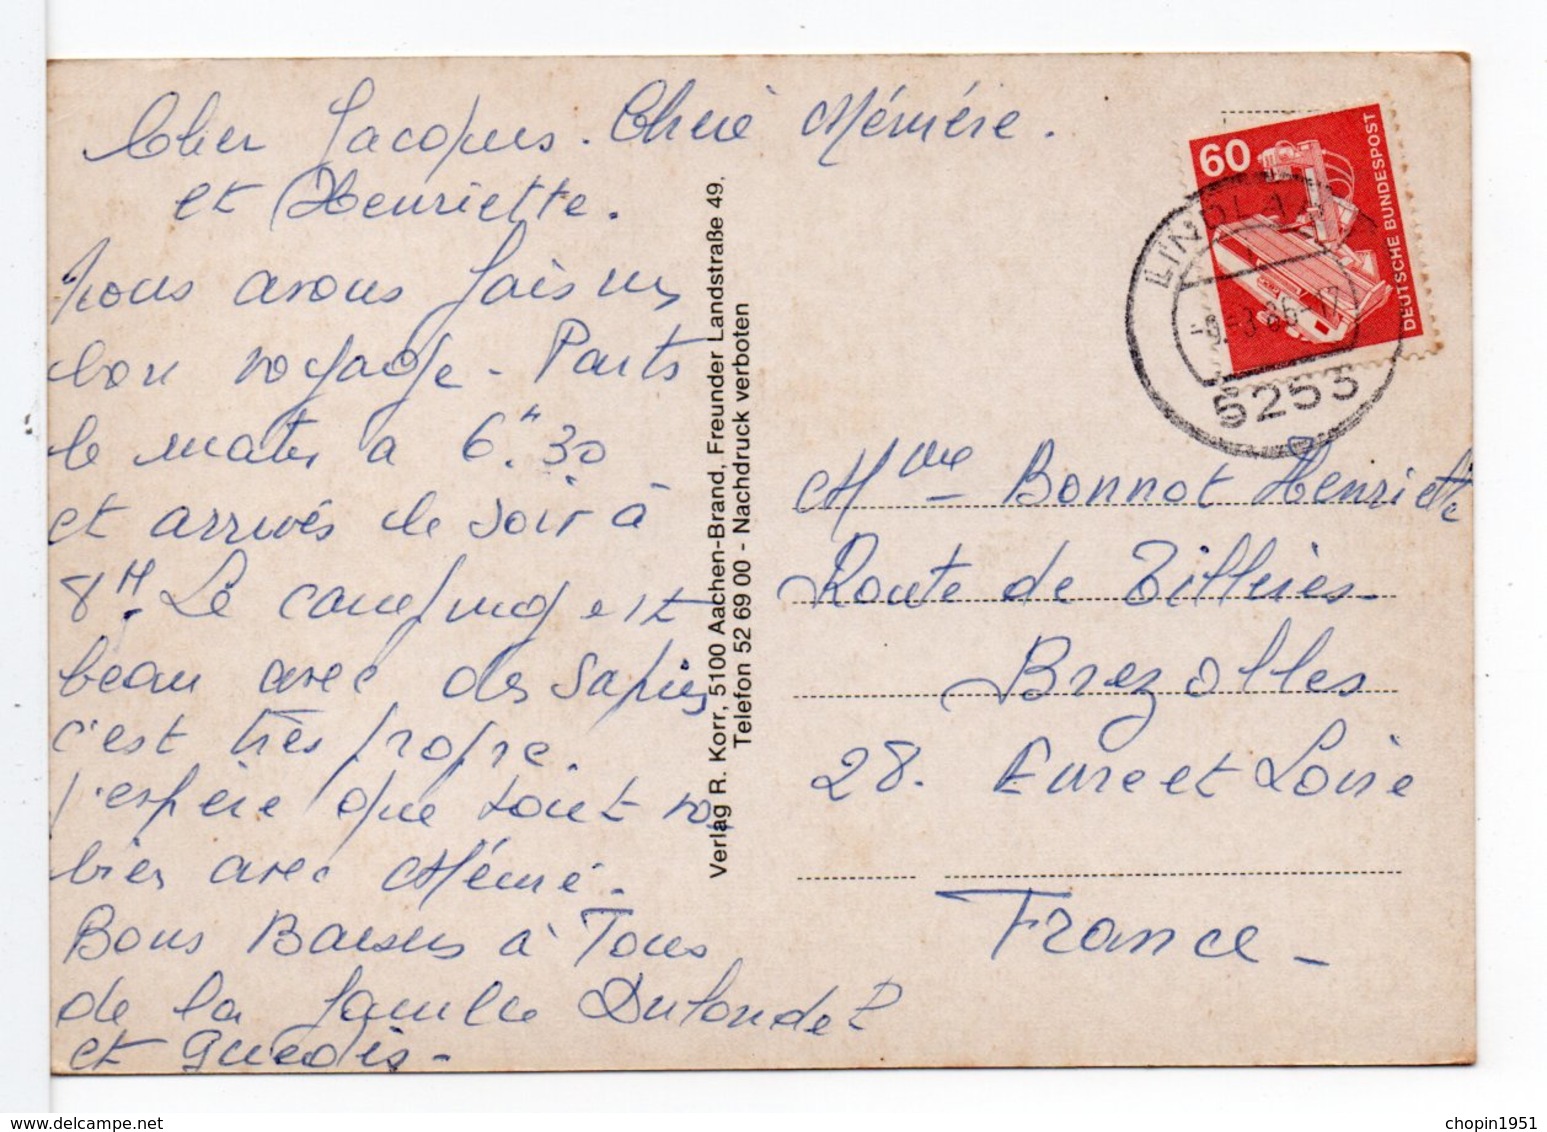 Cher Jacques. Chere Mémère.
et Henriette.
Nous avons fais un
bon voyage - Partis
le matin a 6h.30
et arrivés le soir à
8H. Le camping est
beau avec des sapins
c'est très propre.
j'espère que tout va
bien avec Mémé.
Bons Baisers à Tous
de la famille
et
Verlag R. Korr, 5100 Aachen-Brand, Freunder Landstraße 49,
Telefon 52 69 00 - Nachdruck verboten
60
DEUTSCHE BUNDESPOST
LINDLAR
5253
Mme Bonnot Henriette
Route de Tillières
Brezolles
28. Eure et Loire
France -
chopin1951